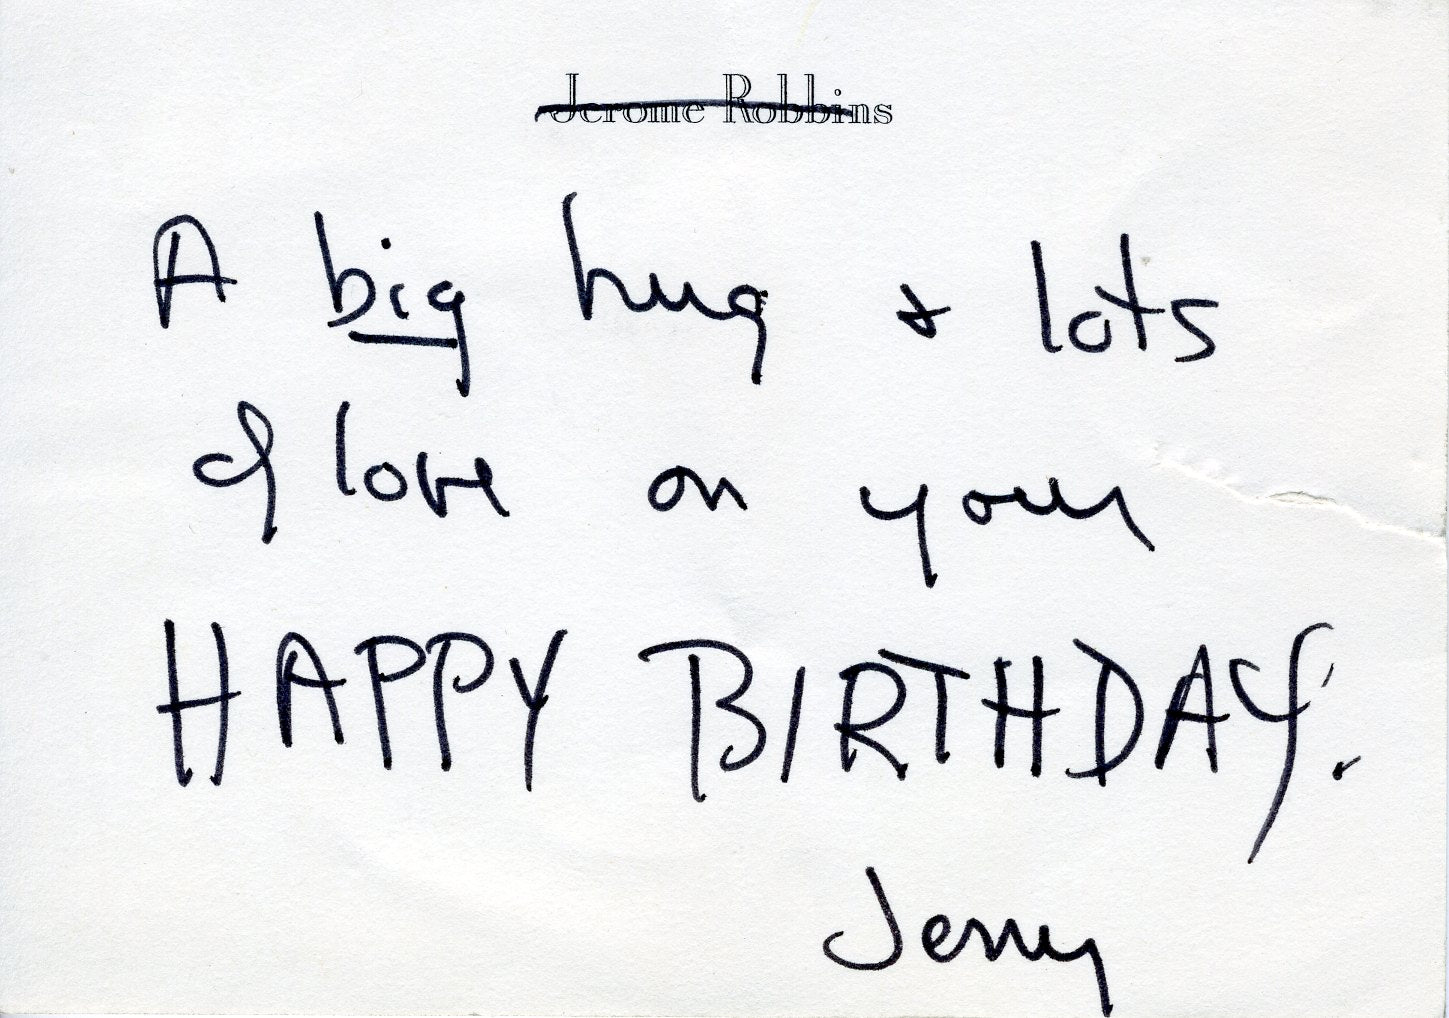 Jerome Robbins
A big hug + lots
of love on your
HAPPY BIRTHDAY.
Jerry